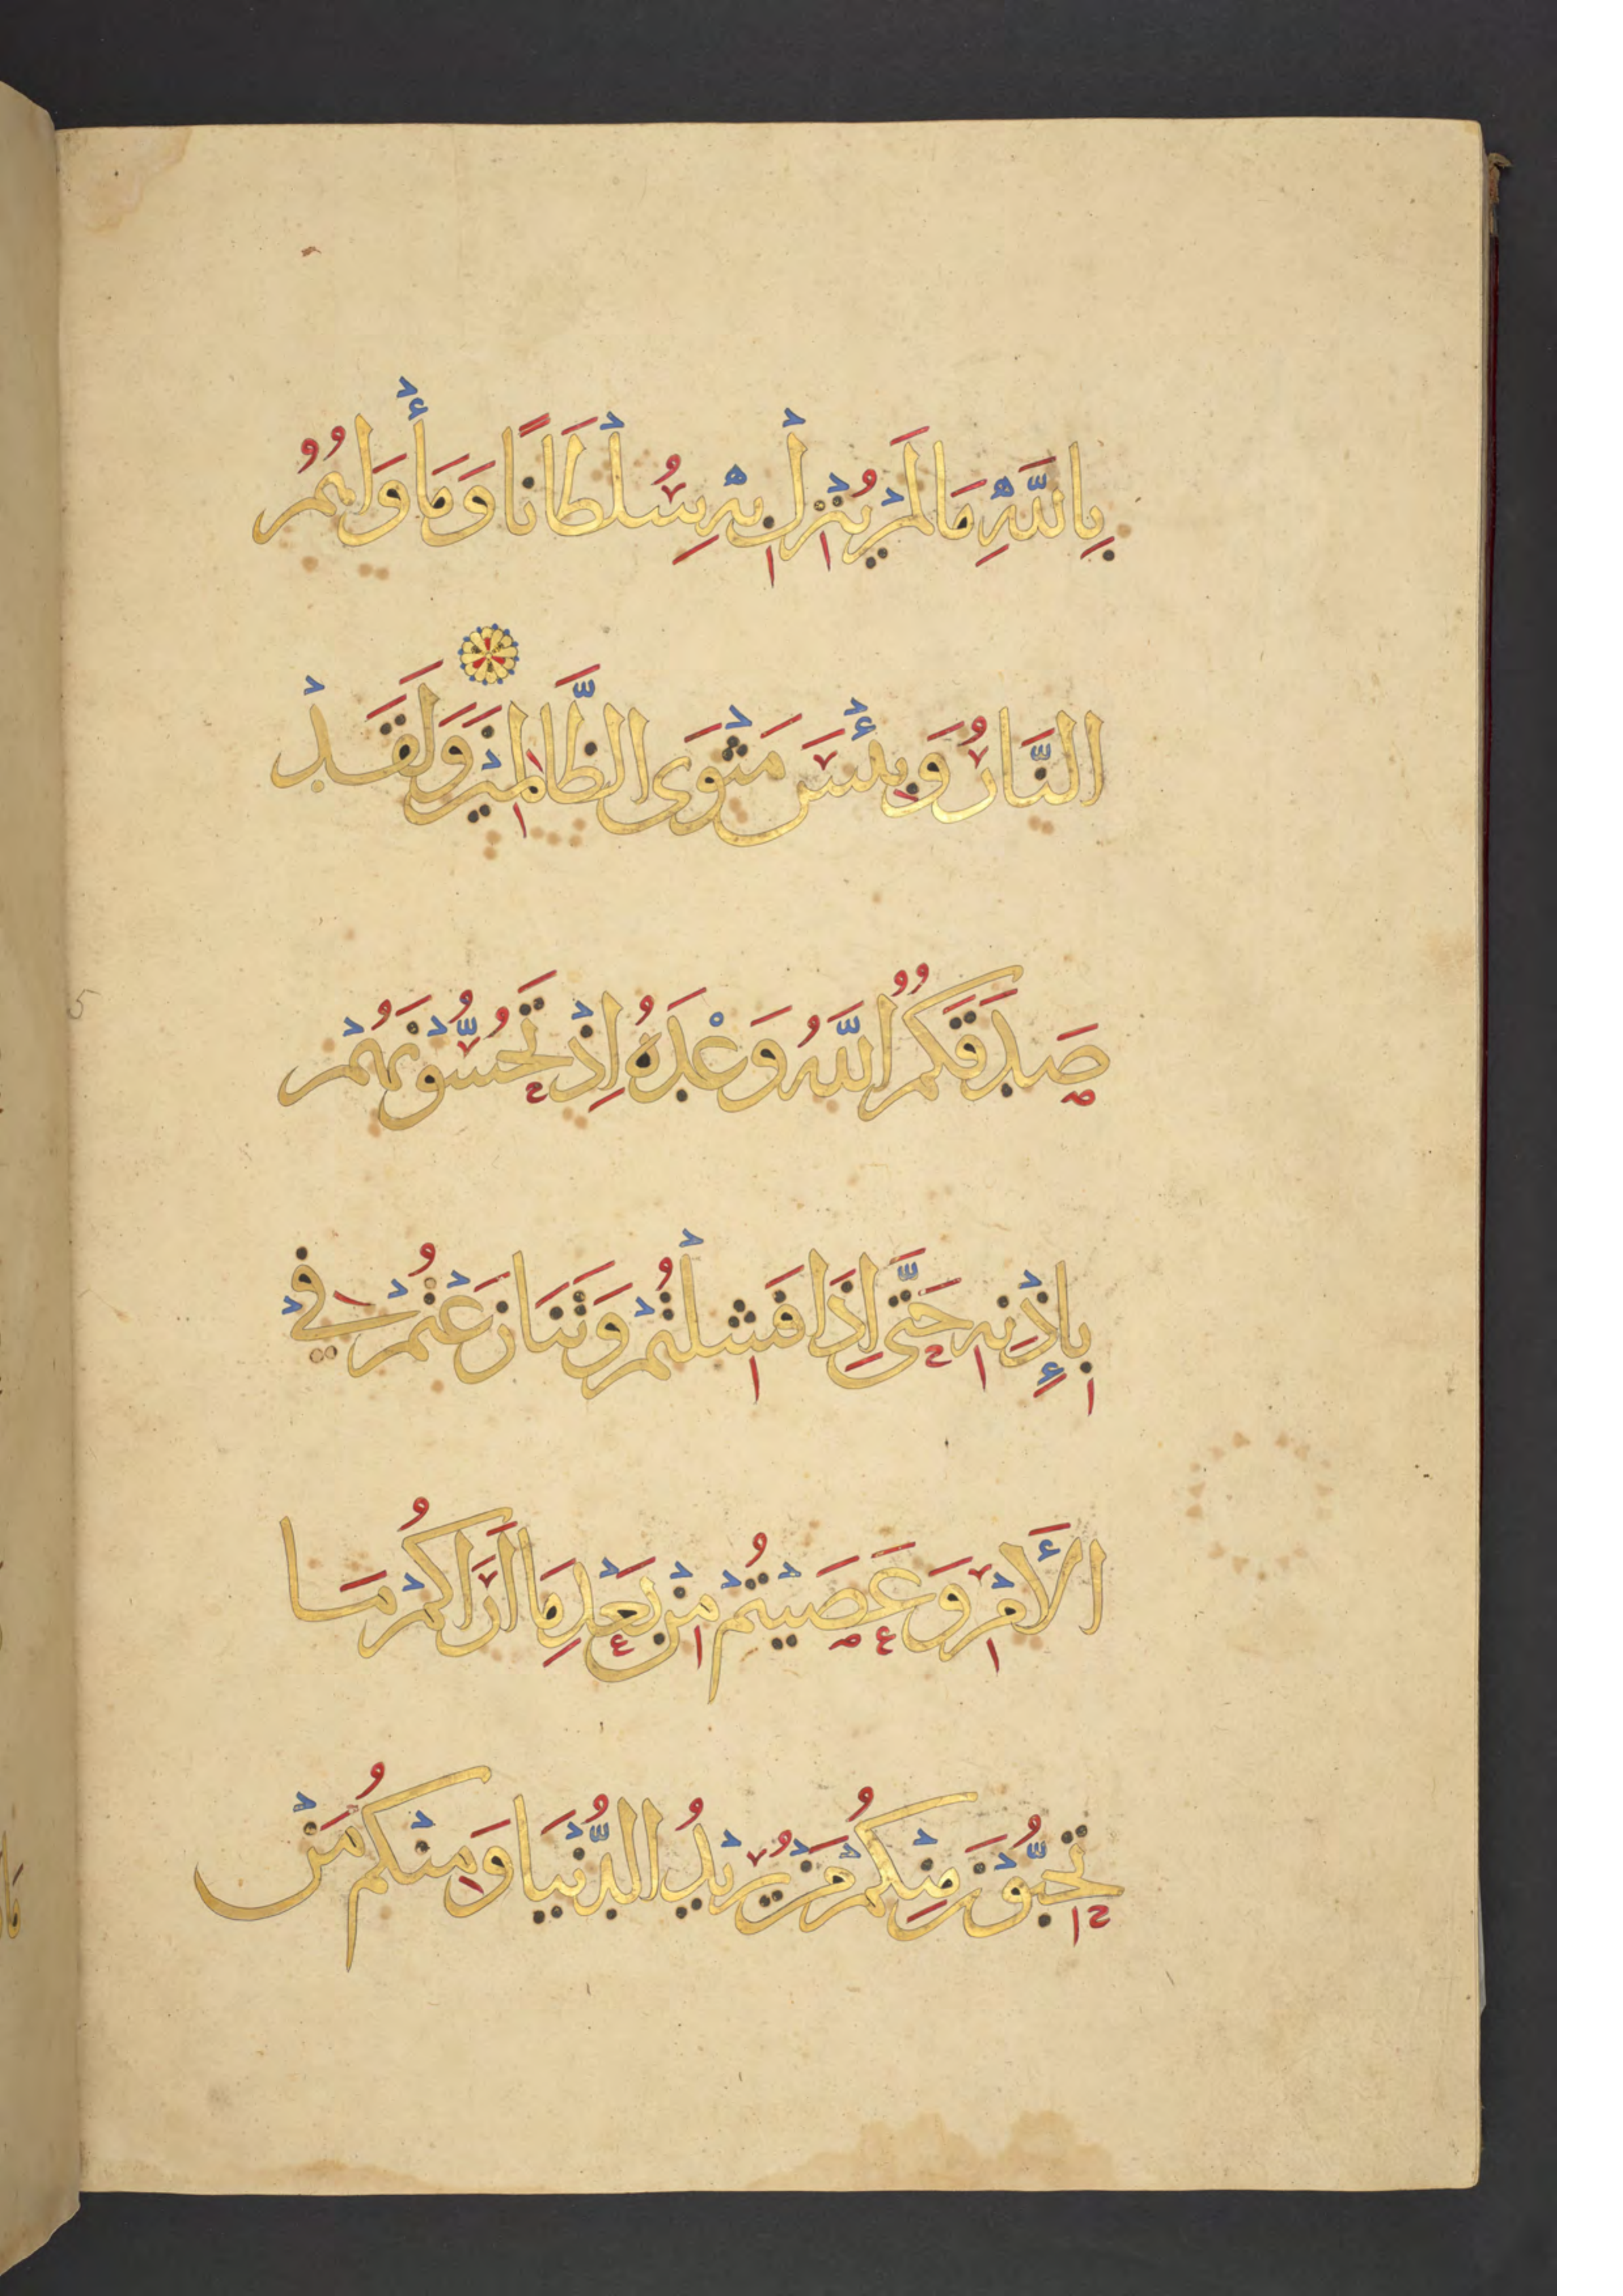 بِاللَّهِ مَا لَمْ يُنْزِلْ بِهِ سُلْطَانًا وَمَأْوَاهُمُ
النَّارُ وَبِئْسَ مَثْوَى الظَّالِمِينَ وَلَقَدْ
صَدَقَكُمُ اللَّهُ وَعْدَهُ إِذْ تَحُسُّونَهُمْ
بِإِذْنِهِ حَتَّى إِذَا فَشِلْتُمْ وَتَنَازَعْتُمْ فِي
الْأَمْرِ وَعَصَيْتُمْ مِنْ بَعْدِ مَا أَرَاكُمْ مَا
تُحِبُّونَ مِنْكُمْ مَنْ يُرِيدُ الدُّنْيَا وَمِنْكُمْ مَنْ